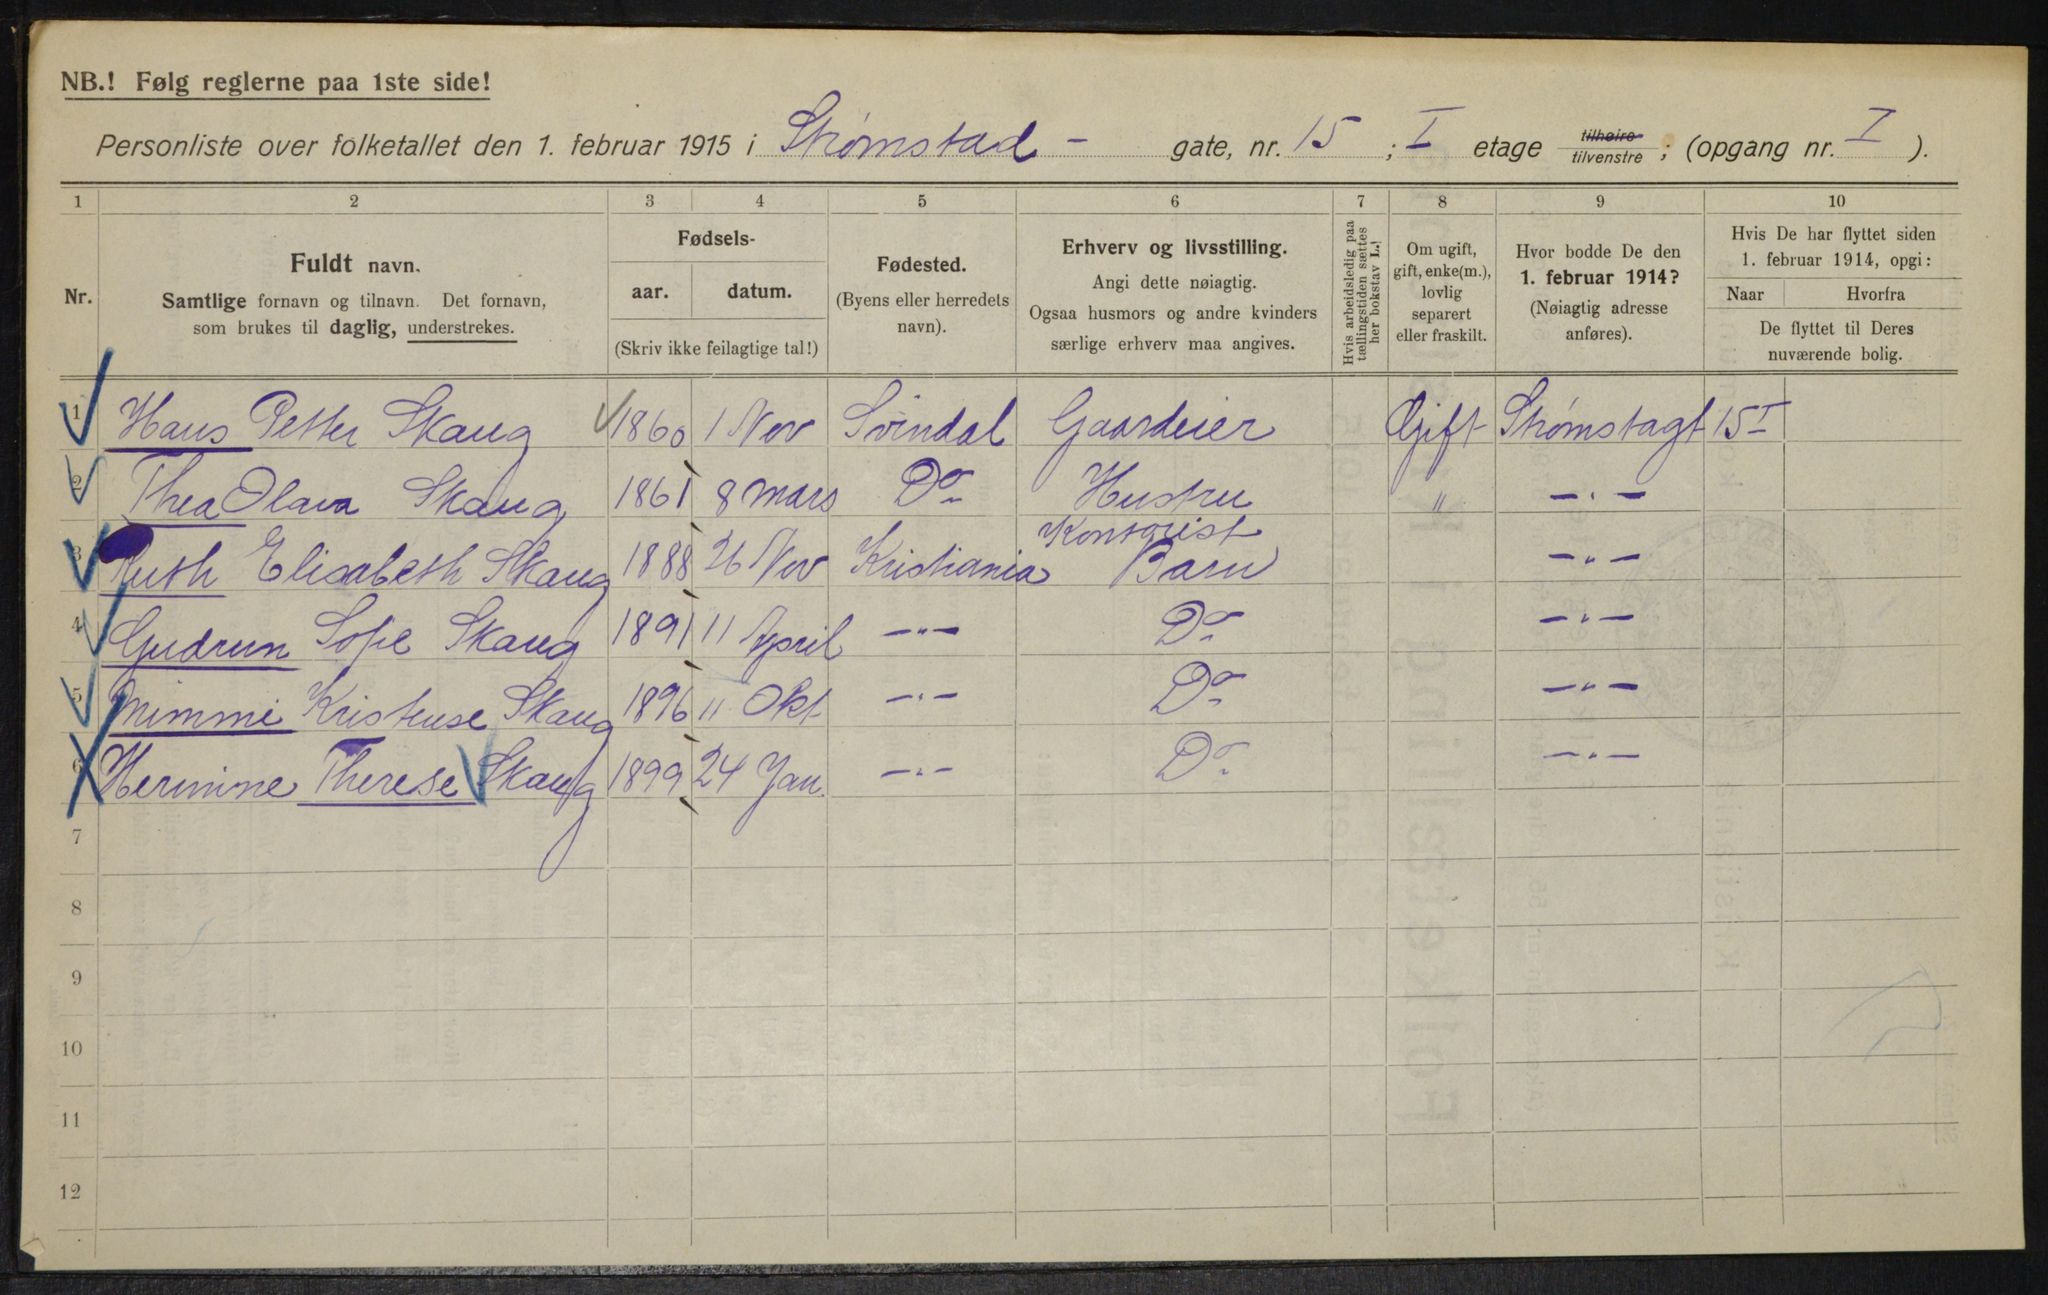 NB.! Følg reglerne paa 1ste side!
Personliste over folketallet den 1. februar 1915 i Strømstad - gate, nr. 15 ; I etage tilhøire tilvenstre ; (opgang nr. I ).
1 2 3 4 5 6 7 8 9 10
Nr.
Fuldt navn.
Samtlige fornavn og tilnavn. Det fornavn,
som brukes til daglig, understrekes.
Fødsels-
aar. datum.
(Skriv ikke feilagtige tal!)
Fødested.
(Byens eller herredets
navn).
Erhverv og livsstilling.
Angi dette nøiagtig.
Ogsaa husmors og andre kvinders
særlige erhverv maa angives.
Hvis arbeidsledig paa
tællingstiden sættes
her bokstav L.!
Om ugift,
gift, enke(m.),
lovlig
separert
eller fraskilt.
Hvor bodde De den
1. februar 1914?
(Nøiagtig adresse
anføres).
Hvis De har flyttet siden
1. februar 1914, opgi:
Naar Hvorfra
De flyttet til Deres
nuværende bolig.
1 Hans Petter Skaug 1860 1 Nov Svindal Gaardeier Gift Strømstagt 15 I
2 Thea Olava Skaug 1861 8 mars Do Hustru " —"—
Kontorist
3 Ruth Elisabeth Skaug 1888 26 Nov Kristiania Barn —"—
4 Gudrun Sofie Skaug 1891 11 April —"— Do —"—
5 Mimmi Kristense Skaug 1896 11 Okt —"— Do —"—
6 Hermine Therese Skaug 1899 24 Jan. —"— Do —"—
7
8
9
10
11
12